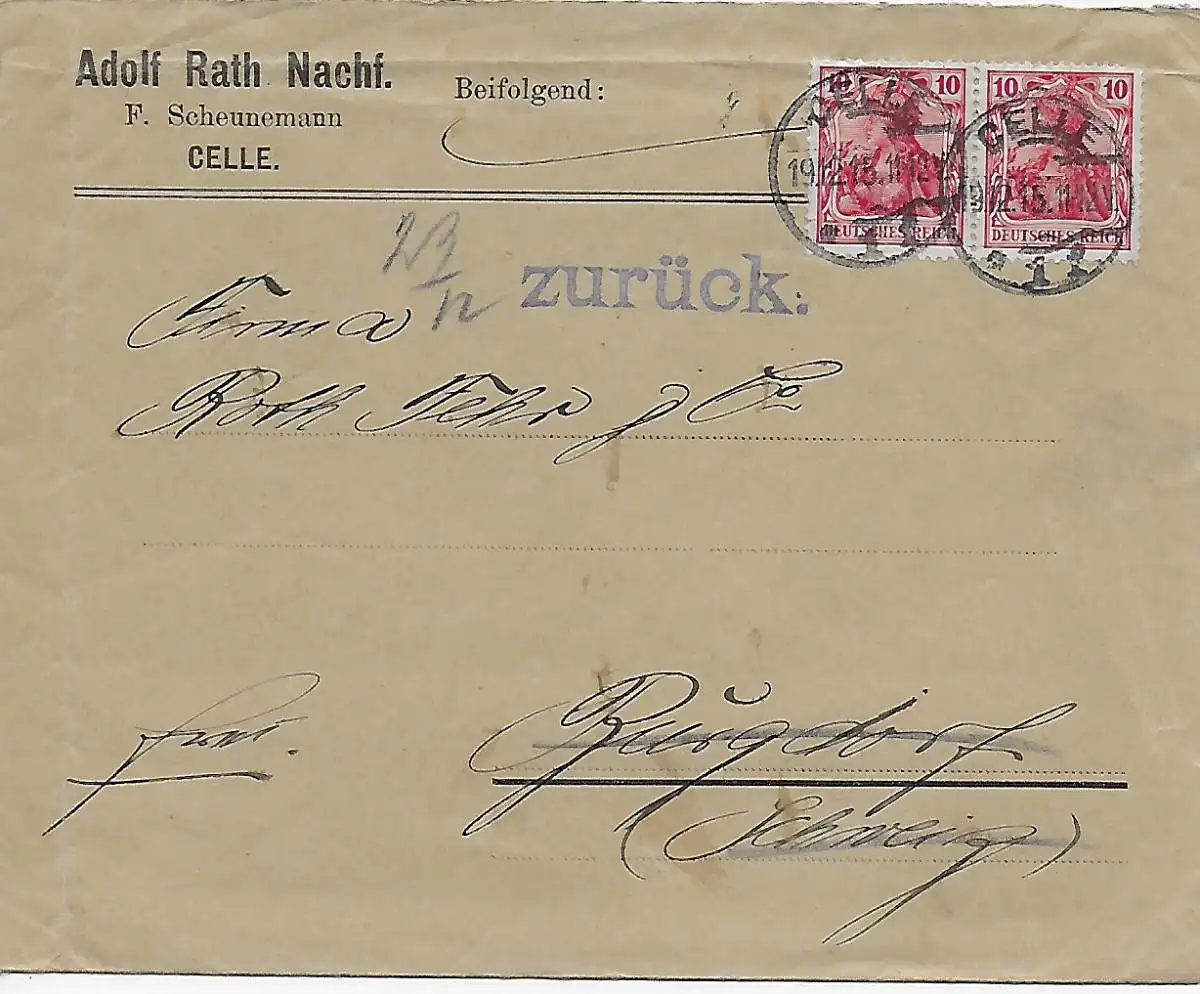 Adolf Rath Nachf.
F. Scheunemann
CELLE.
Beifolgend:
10 10
10 10
DEUTSCHES REICH
DEUTSCHES REICH
CELLE
19.12.15.11-12V
* 1 i
CELLE
19.12.15.11-12V
* 1 i
23/12
zurück.
Firma
Roth Fehr & Co
frei.
Burgdorf
(Schweiz)